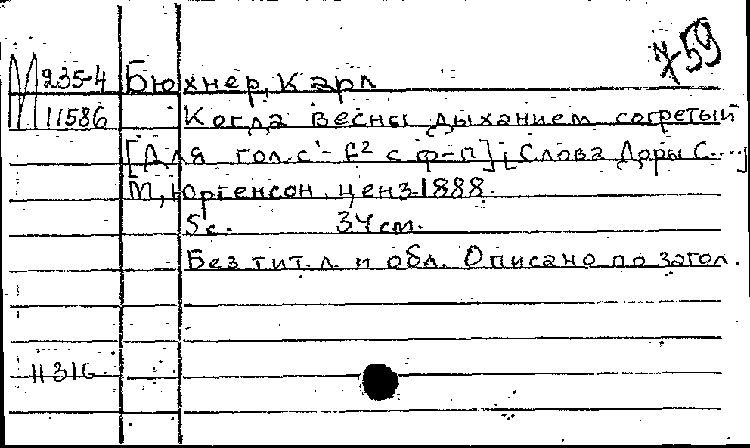 759
М 235-4 Бюхнер, Карл
11586 Когда весны дыханием согретый
[Для гол. c¹-f² с ф-п]. [Слова Доры С....]
М., Юргенсон, ценз. 1888.
5 с. 34 см.
Без тит. л. и обл. Описано по загол.
11316